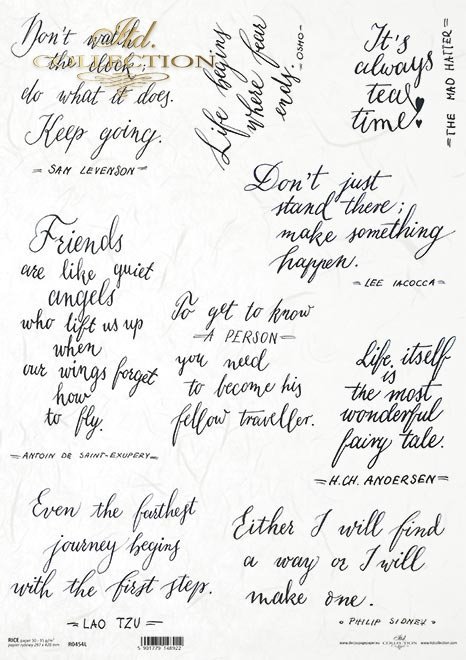 Don't watch
the clock;
do what it does.
Keep going.
= SAM LEVENSON =
Itd.
COLLECTION
Life begins
where fear
ends.
- OSHO -
It's
always
tea
time!
= THE MAD HATTER =
Don't just
stand there;
make something
happen.
= LEE IACOCCA =
Friends
are like quiet
angels
who lift us up
when
our wings forget
how
to fly.
= ANTOIN DE SAINT-EXUPERY =
To get to know
= A PERSON =
you need
to become his
fellow traveller.
Life itself
is
the most
wonderful
fairy tale.
= H.CH. ANDERSEN =
Even the farthest
journey begins
with the first step.
= LAO TZU =
Either I will find
a way or I will
make one.
• PHILIP SIDNEY •
RICE paper 30 - 35 g/m²
papier ryżowy 297 x 420 mm
R0454L
5 901779 148922
www.decoupagepaper.eu
Itd.
COLLECTION
www.itdcollection.com